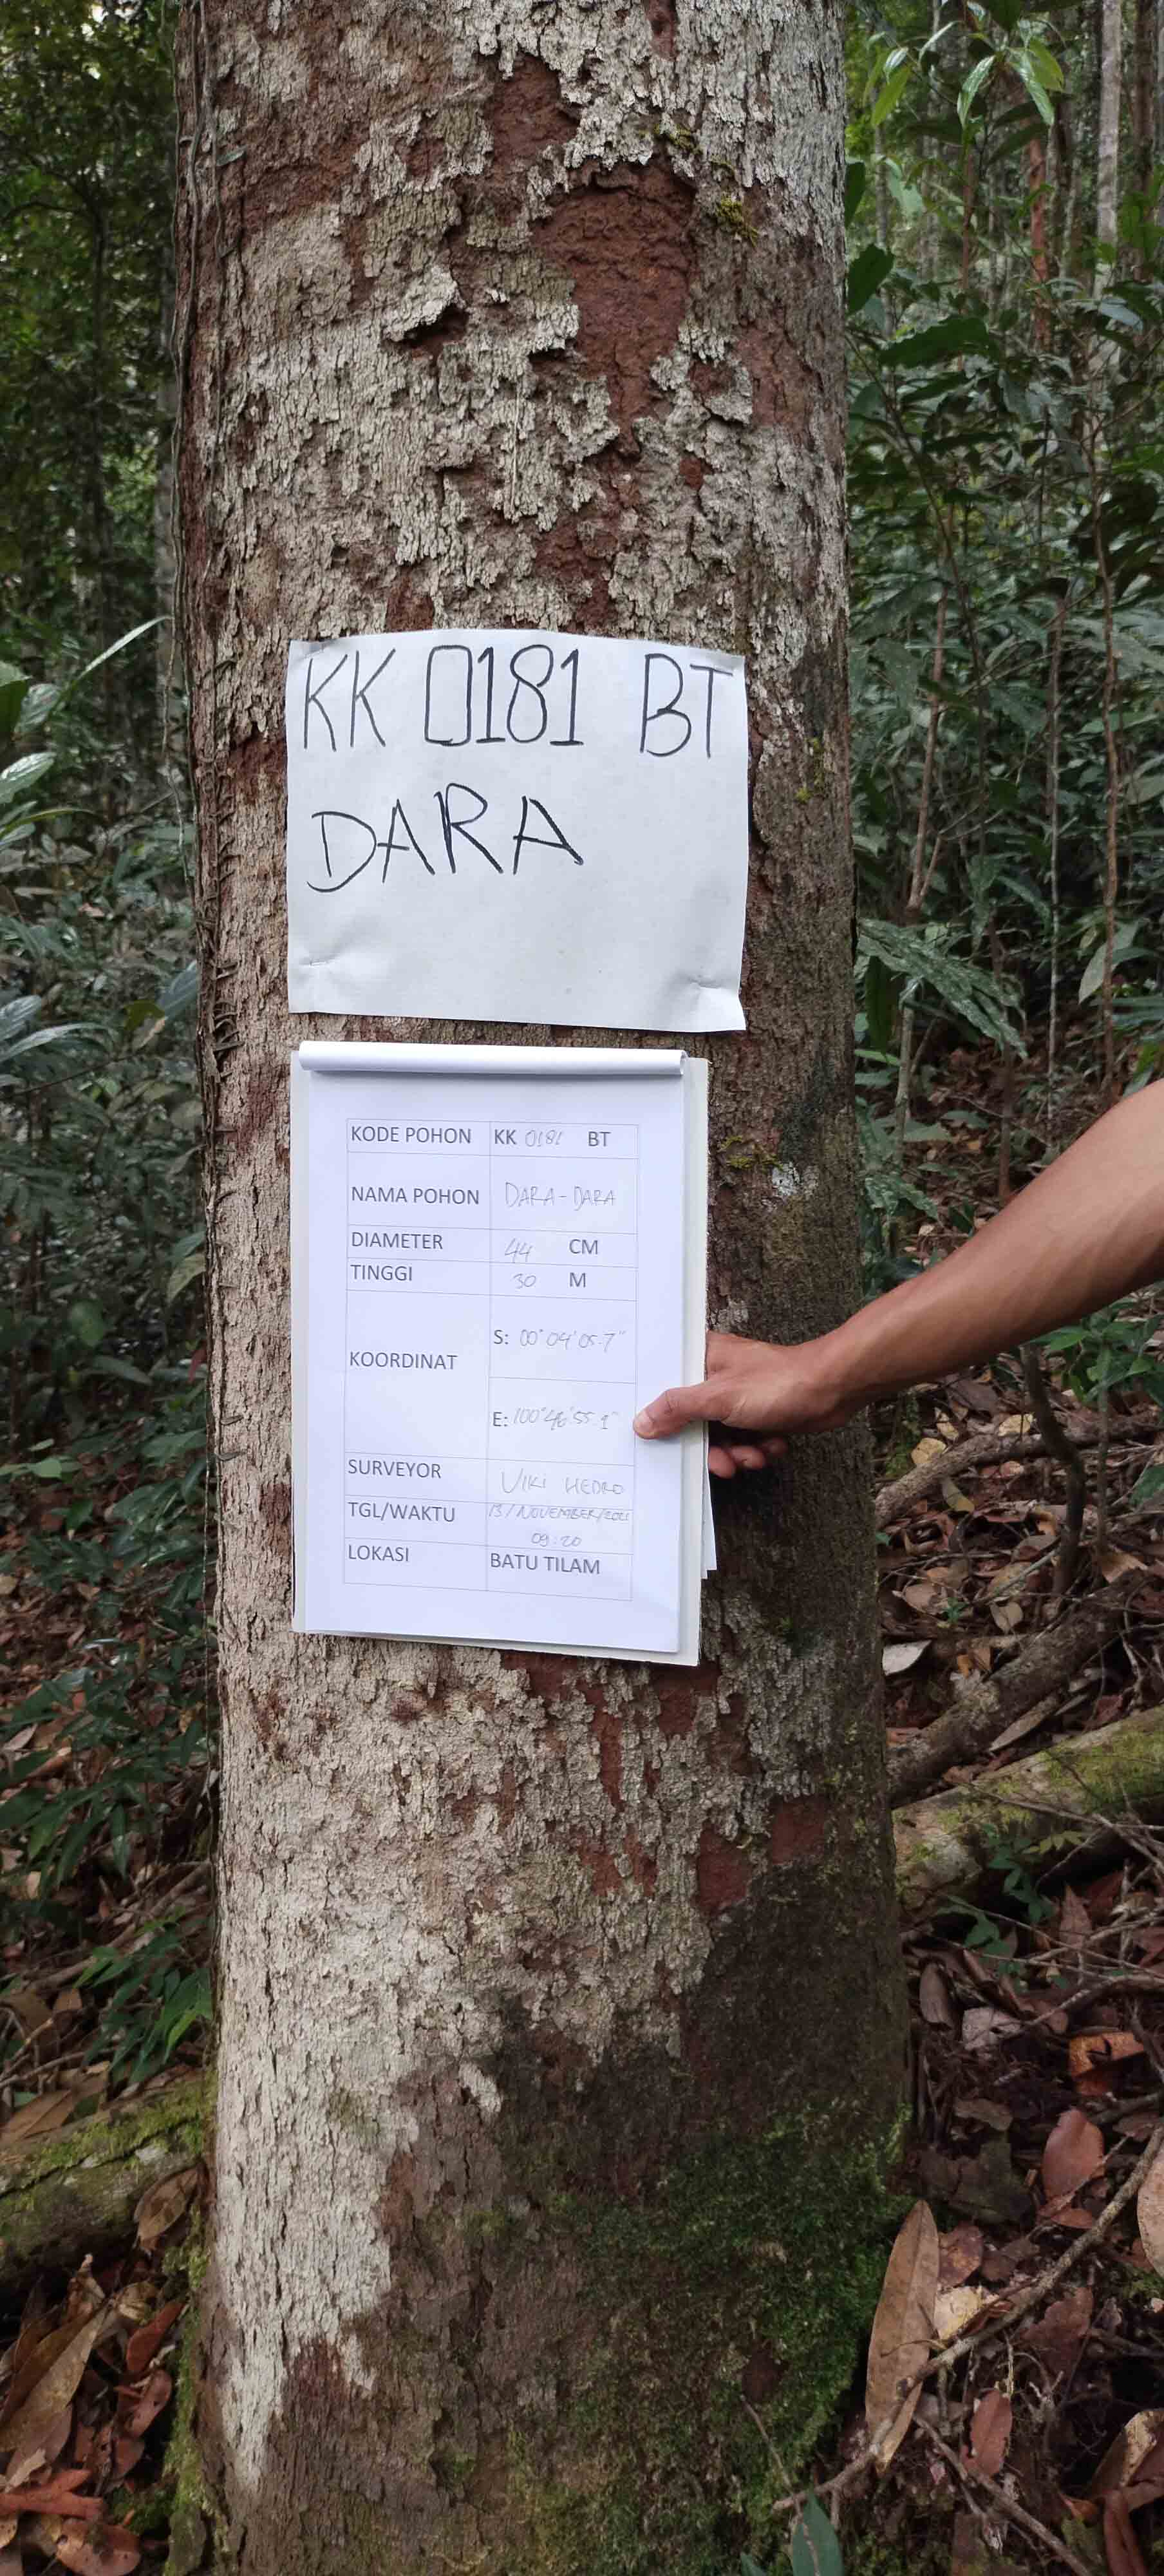 KK 0181 BT
DARA
KODE POHON KK 0181 BT
NAMA POHON DARA-DARA
DIAMETER 44 CM
TINGGI 30 M
KOORDINAT
S: 00°04'05.7"
E: 100°46'55.1"
SURVEYOR VIKI HEDRO
TGL/WAKTU 13/NOVEMBER/2021
09:20
LOKASI BATU TILAM